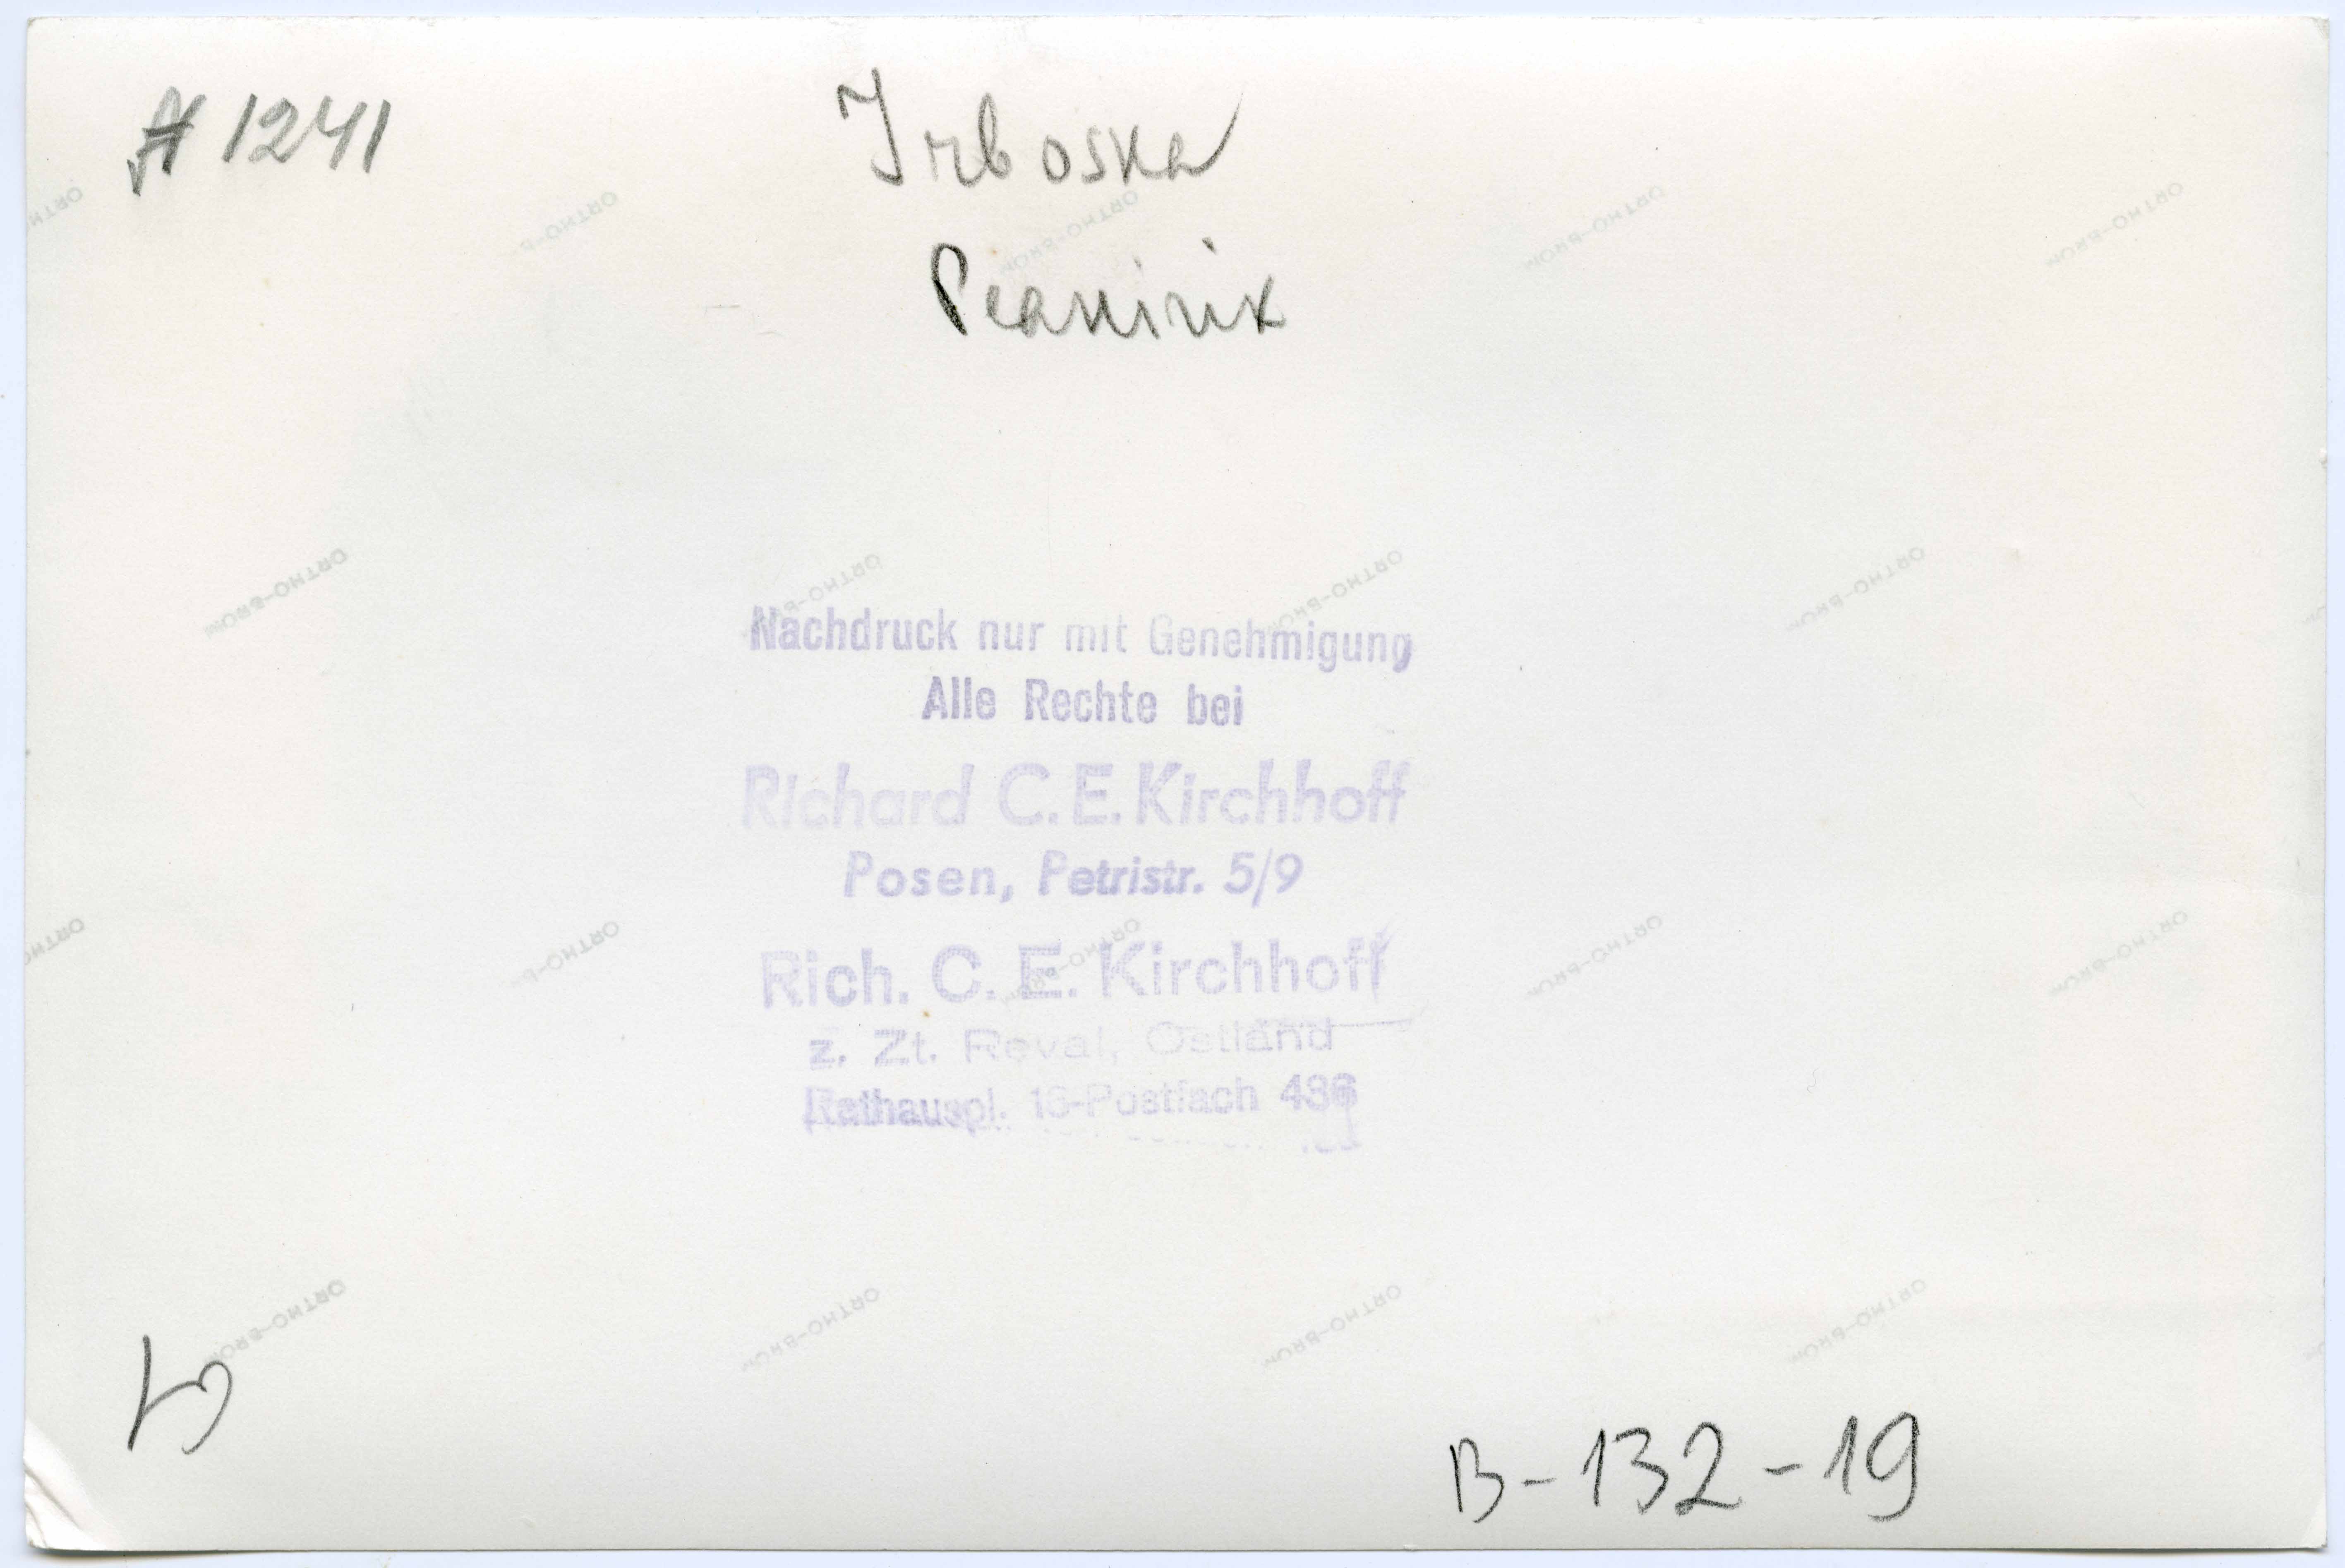 A 1241
Irboska
Peanirik
Nachdruck nur mit Genehmigung
Alle Rechte bei
Richard C. E. Kirchhoff
Posen, Petristr. 5/9
Rich. C. E. Kirchhoff
z. Zt. Reval, Ostland
Rathauspl. 16-Postfach 436
B-132-19
ORTHO-BROM